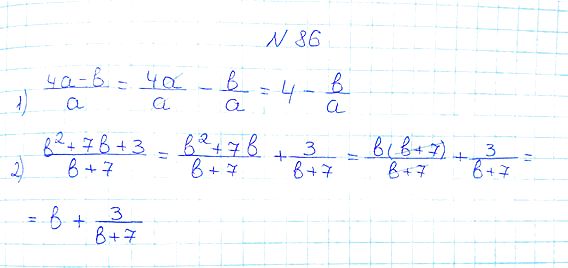 N 86
1) (4a-b)/a = 4a/a - b/a = 4 - b/a
2) (b²+7b+3)/(b+7) = (b²+7b)/(b+7) + 3/(b+7) = b(b+7)/(b+7) + 3/(b+7) =
= b + 3/(b+7)